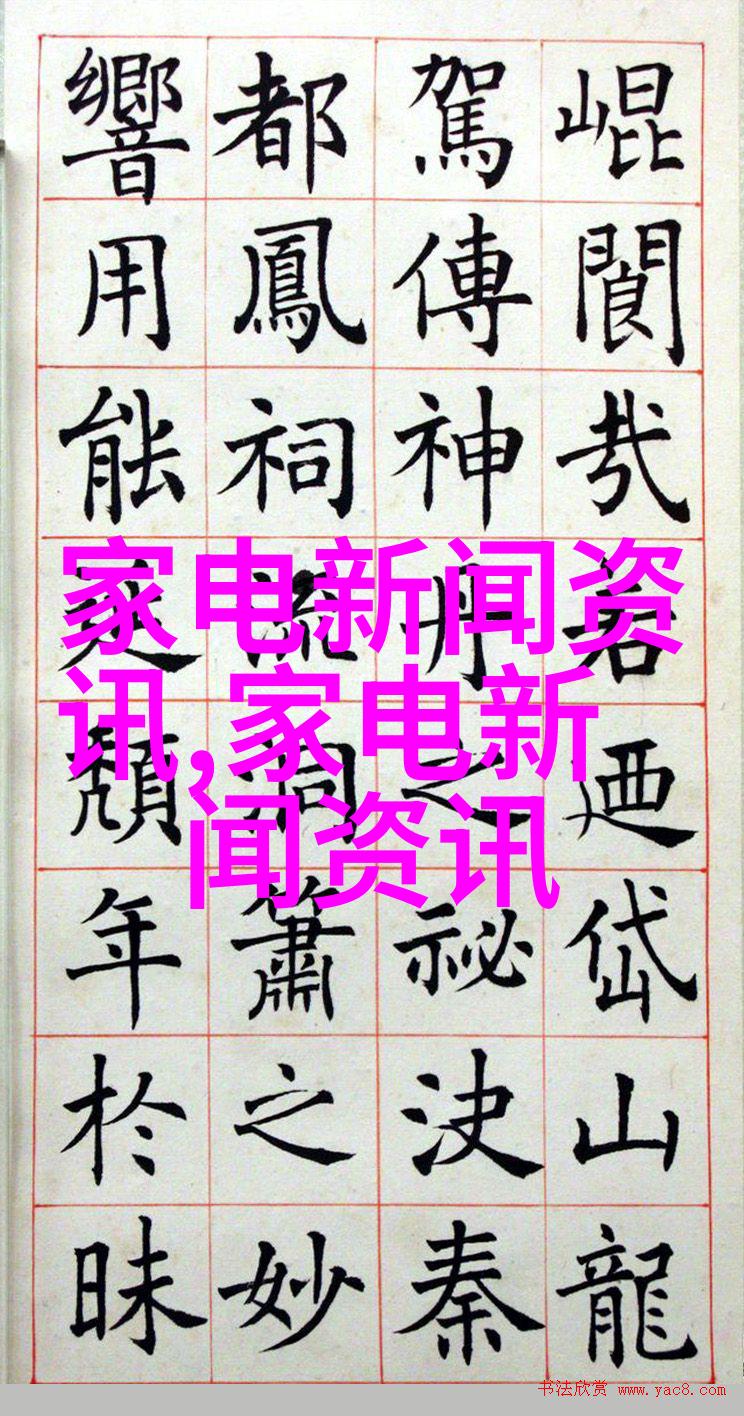 崐閬㢤若迺岱山龍
駕傳神丹之祕決秦
都鳳祠流洞簫之妙
響用能延頹年於昧
家电新闻资
讯,家电新
闻资讯
书法欣赏 www.yac8.com